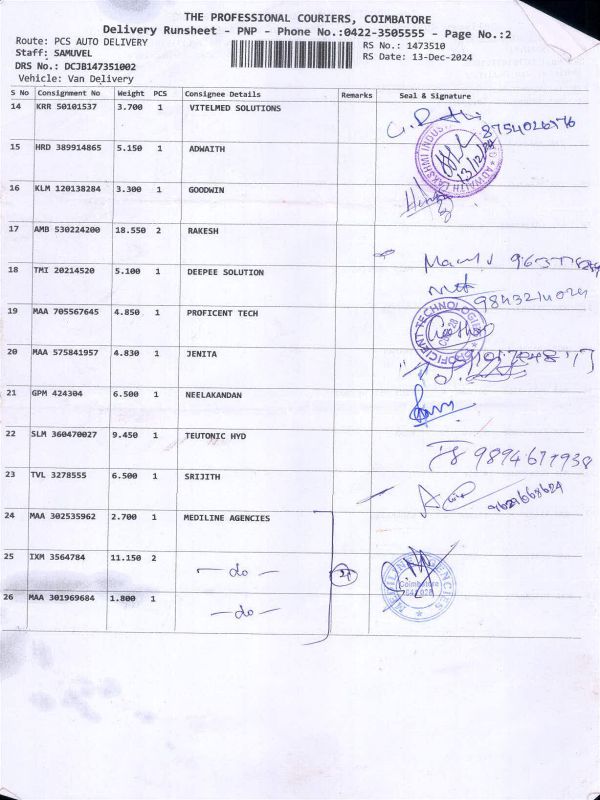 THE PROFESSIONAL COURIERS, COIMBATORE
Delivery Runsheet - PNP - Phone No.:0422-3505555 - Page No.:2
Route: PCS AUTO DELIVERY
Staff: SAMUVEL
DRS No.: DCJB147351002
Vehicle: Van Delivery
RS No.: 1473510
RS Date: 13-Dec-2024
S No Consignment No Weight PCS Consignee Details Remarks Seal & Signature
14 KRR 50101537 3.700 1 VITELMED SOLUTIONS
15 HRD 389914865 5.150 1 ADWAITH 13/12/24
16 KLM 120138284 3.300 1 GOODWIN
17 AMB 530224200 18.550 2 RAKESH
18 TMI 20214520 5.100 1 DEEPEE SOLUTION 9843214024
19 MAA 705567645 4.850 1 PROFICENT TECH
20 MAA 575841957 4.830 1 JENITA
21 GPM 424304 6.500 1 NEELAKANDAN
22 SLM 360470027 9.450 1 TEUTONIC HYD 9894671938
23 TVL 3278555 6.500 1 SRIJITH 9629668624
24 MAA 302535962 2.700 1 MEDILINE AGENCIES
25 IXM 3564784 11.150 2 -do-
26 MAA 301969684 1.800 1 -do-
MEDILINE AGENCIES
Coimbatore